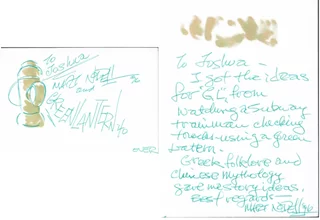 To
Joshua
MART NODELL
96
and
GREEN LANTERN to
OVER
To Joshua -
I got the ideas
for "GL", from
watching a subway
trainman checking
tracks using a green
lantern.
Greek folklore and
Chinese mythology
gave me story ideas.
Best regards -
MART NODELL 96